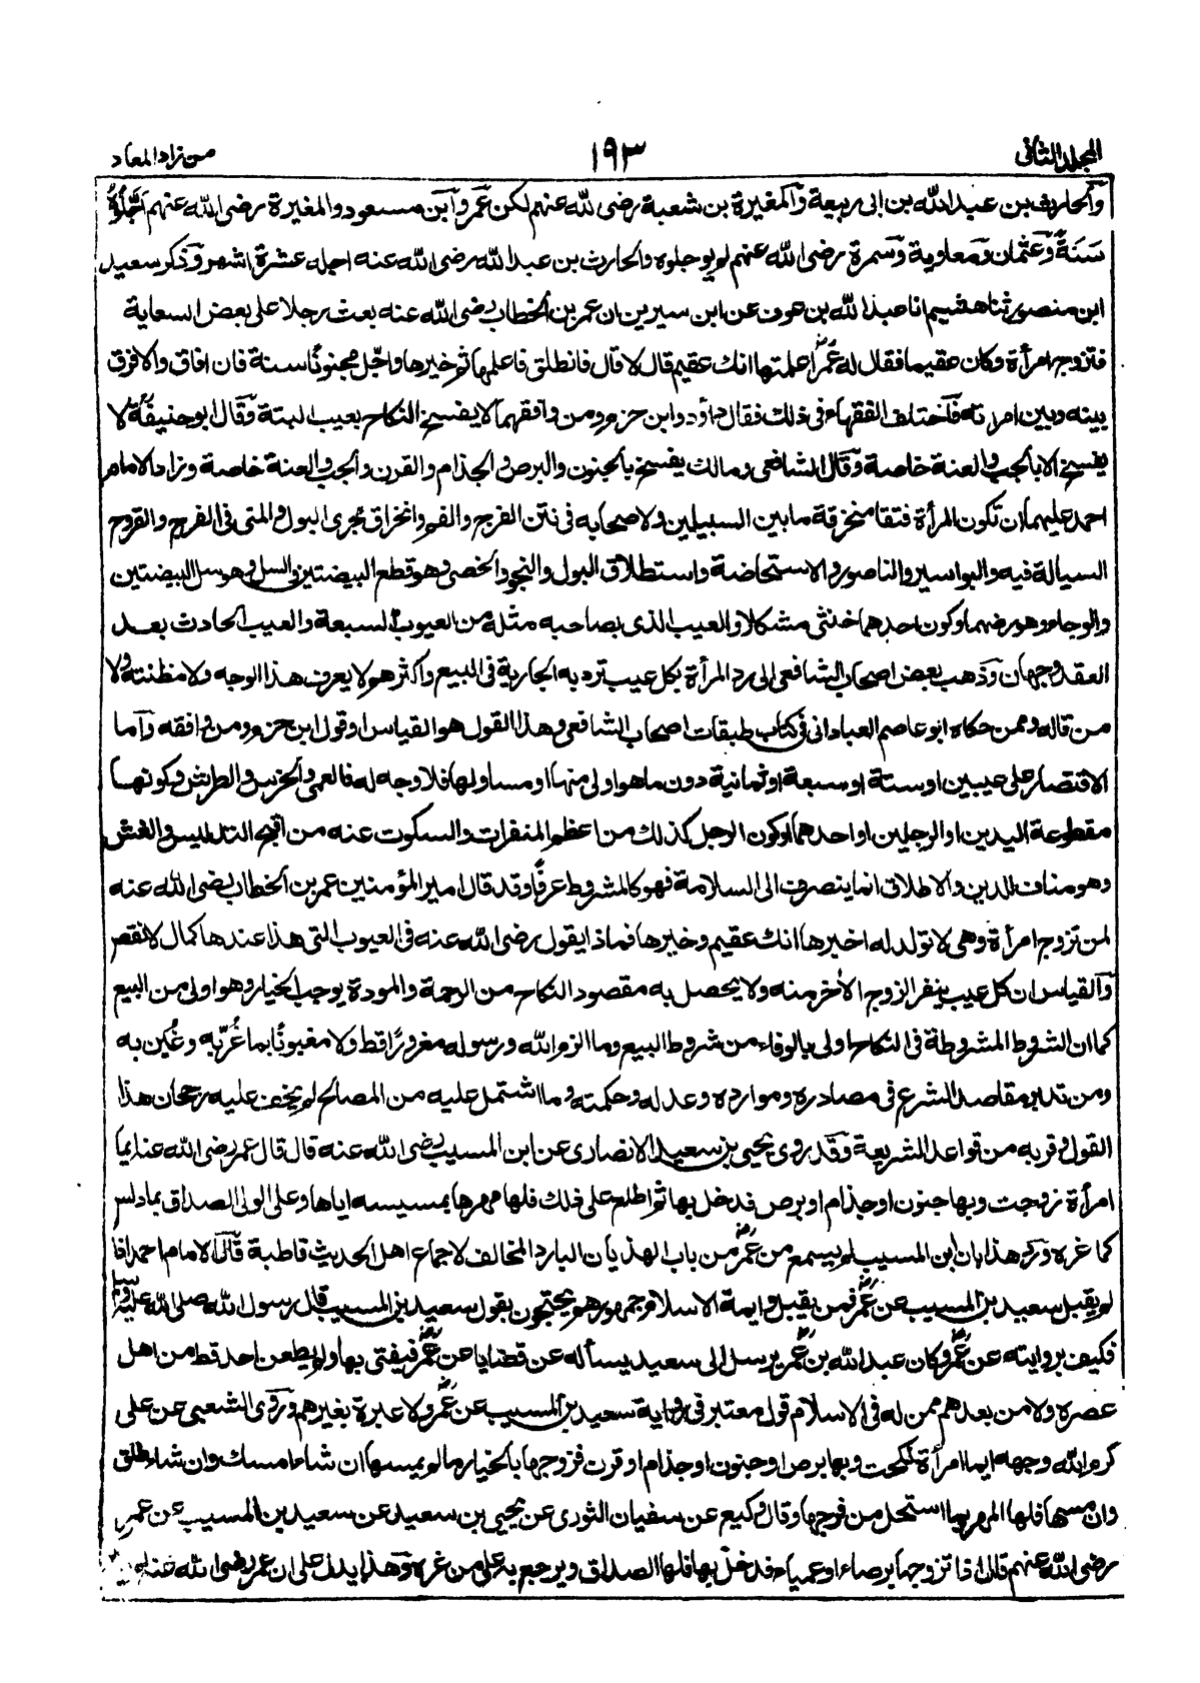 المجلد الثانى
١٩٣
من زاد المعاد
والحارث بن عبد الله بن ابى ربيعة والمغيرة بن شعبة رضى الله عنهم لكن عمر وابن مسعود والمغيرة رضى الله عنهم اجلوه
سنة وعثمان ومعاوية وسمرة رضى الله عنهم لم يوجلوه والحارث بن عبد الله رضى الله عنه اجله عشرة اشهر وذكر سعيد
ابن منصور ثنا هشيم انا عبد الله بن عون عن ابن سيرين ان عمر بن الخطاب رضى الله عنه بعث رجلا على بعض السعاية
فتزوج امرأة وكان عقيما فقال له عمر اعلمتها انك عقيم قال لا قال فانطلق فاعلمها ثم خيرها واجّل مجنونًا سنة فان افاق والا فرق
بينه وبين امرأته فاختلف الفقهاء فى ذلك فقال داؤد وابن حزم ومن وافقهما لا يفسخ النكاح بعيب البتة وقال ابو حنيفة لا
يفسخ الا بالجب والعنة خاصة وقال الشافعى ومالك يفسخ بالجنون والبرص والجذام والقرن والجب والعنة خاصة وزاد الامام
احمد عليهما ان تكون المرأة فتقا منخرقة ما بين السبيلين ولاصحابه فى نتن الفرج والفم وانخراق مجرى البول والمنى فى الفرج والقروح
السيالة فيه والبواسير والناصور والاستحاضة واستطلاق البول والنجو والخصى وهو قطع البيضتين والسل وهو سل البيضتين
والوجاء وهو رضهما وكون احدهما خنثى مشكلا والعيب الذى بصاحبه مثله من العيوب السبعة والعيب الحادث بعد
العقد وجهان وذهب بعض اصحاب الشافعى الى رد المرأة بكل عيب ترد به الجارية فى البيع واكثرهم لا يعرف هذا الوجه ولا مظنته ولا
من قاله وممن حكاه ابو عاصم العبادانى فى كتاب طبقات اصحاب الشافعى وهذا القول هو القياس او قول ابن حزم ومن وافقه واما
الاقتصار على عيبين او ستة او سبعة او ثمانية دون ما هو اولى منها او مساو لها فلا وجه له فالعمى والخرس والطرش وكونها
مقطوعة اليدين او الرجلين او احدهما او كون الرجل كذلك من اعظم المنفرات والسكوت عنه من اقبح التدليس والغش
وهو مناف للدين والاطلاق انما ينصرف الى السلامة فهو كالمشروط عرفًا وقد قال امير المؤمنين عمر بن الخطاب رضى الله عنه
لمن تزوج امرأة وهى لا تولد له اخبرها انك عقيم وخيرها فماذا يقول رضى الله عنه فى العيوب التى هذا عندها كمال لا نقص
والقياس ان كل عيب ينفر الزوج الاخر منه ولا يحصل به مقصود النكاح من الرحمة والمودة يوجب الخيار وهو اولى من البيع
كما ان الشروط المشروطة فى النكاح اولى بالوفاء من شروط البيع وما الزم الله ورسوله مغرورًا قط ولا مغبونًا بما غُرّ به وغُبن به
ومن تدبر مقاصد الشرع فى مصادره وموارده وعدله وحكمته وما اشتمل عليه من المصالح لم يخف عليه رجحان هذا
القول وقربه من قواعد الشريعة وقد روى يحيى بن سعيد الانصارى عن ابن المسيب رضى الله عنه قال قال عمر رضى الله عنه ايما
امرأة زوجت وبها جنون او جذام او برص فدخل بها ثم اطلع على ذلك فلها مهرها بمسيسه اياها وعلى الولى الصداق بما دلس
كما غره ورد هذا بان ابن المسيب لم يسمع من عمر من باب الهذيان البارد المخالف لاجماع اهل الحديث قاطبة قال الامام احمد اذا
لم يقبل سعيد بن المسيب عن عمر فمن يقبل وايمة الاسلام وجمهورهم يحتجون بقول سعيد بن المسيب قال رسول الله صلى الله عليه وسلم
فكيف بروايته عن عمر وكان عبد الله بن عمر يرسل الى سعيد يسأله عن قضايا عن عمر فيفتى بها ولم يطعن احد قط من اهل
عصره ولا من بعدهم ممن له فى الاسلام قول معتبر فى رواية سعيد بن المسيب عن عمر ولا عبرة بغيرهم وروى الشعبى عن على
كرم الله وجهه ايما امرأة نكحت وبها برص او جنون او جذام او قرن فزوجها بالخيار ما لم يمسها ان شاء امسك وان شاء طلق
وان مسها فلها المهر بما استحل من فرجها وقال وكيع عن سفيان الثورى عن يحيى بن سعيد عن سعيد بن المسيب عن عمر
رضى الله عنهم قال اذا تزوجها برصاء او عمياء فدخل بها فلها الصداق ويرجع به على من غره وهذا يدل على ان عمر رضى الله عنه لم